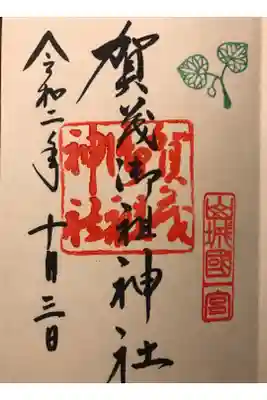 山城國一宮
賀茂御祖神社
賀茂
御祖
神社
令和二年 十月三日